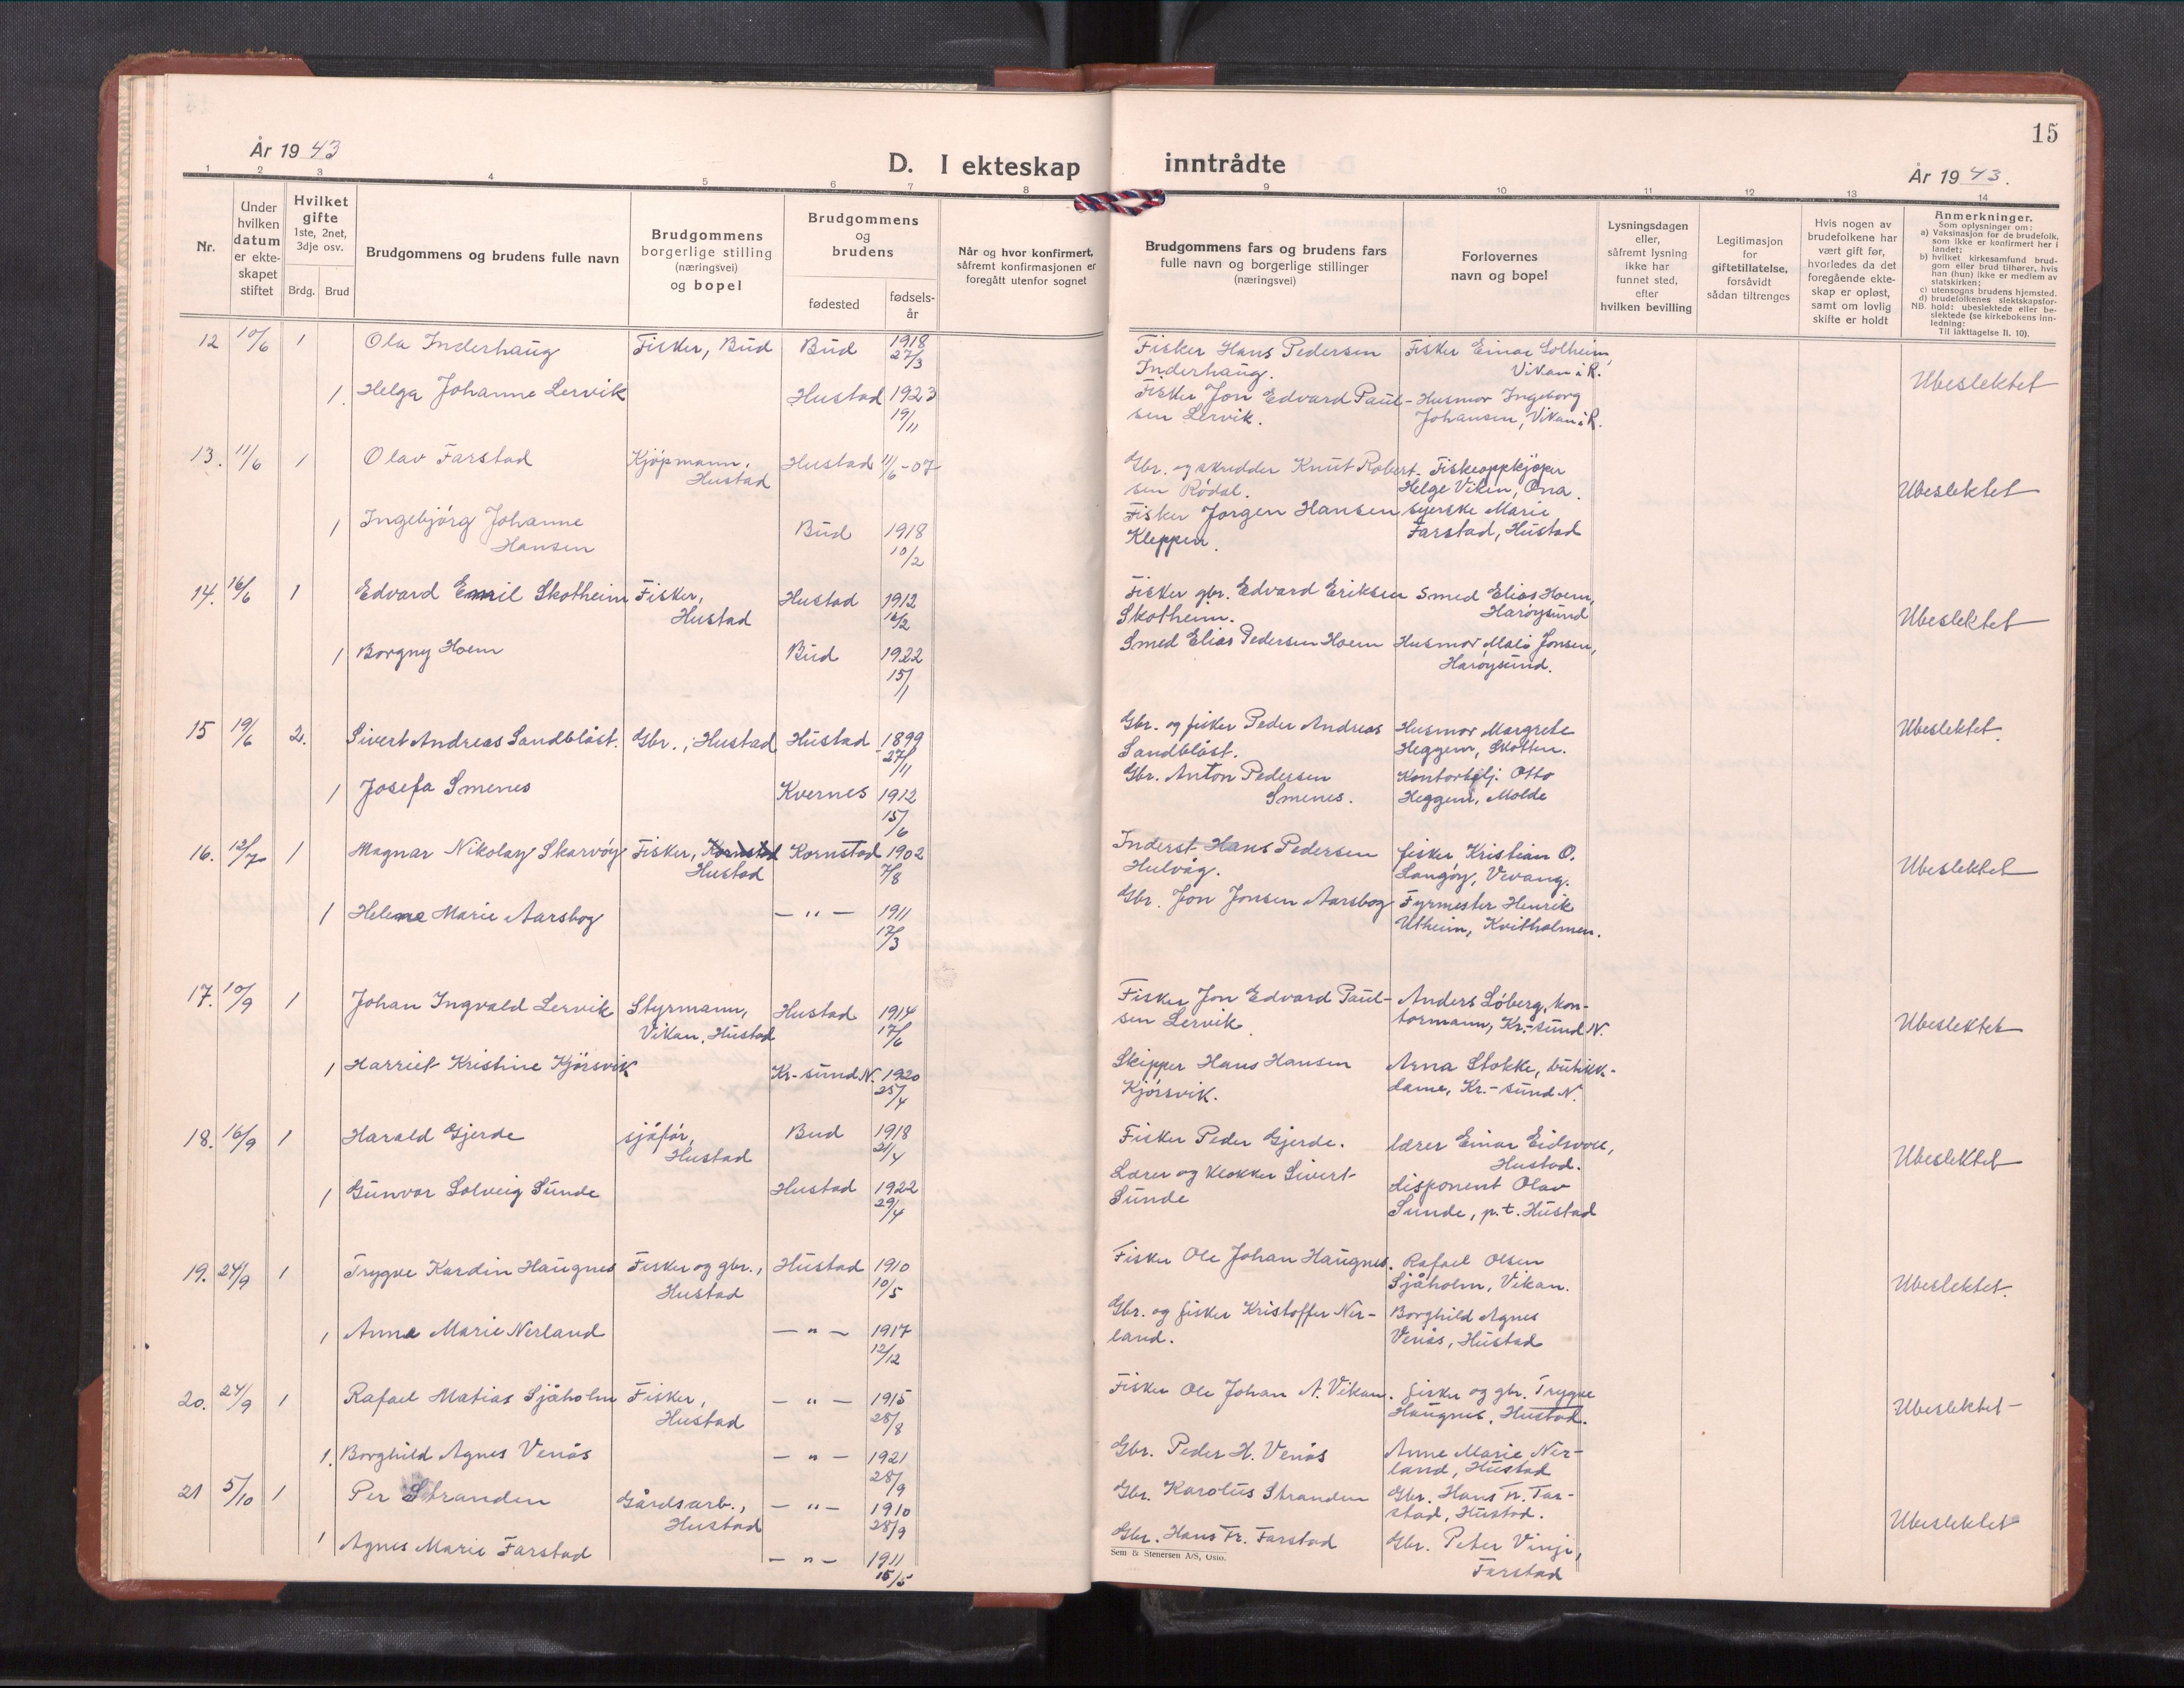 15
År 1943
D. I ekteskap inntrådte
År 1943.
1 2 3 4 5 6 7 8 9 10 11 12 13 14
Nr.
Under hvilken datum er ekte-skapet stiftet
Hvilket gifte 1ste, 2net, 3dje osv.
Brdg. Brud
Brudgommens og brudens fulle navn
Brudgommens borgerlige stilling (næringsvei) og bopel
Brudgommens og brudens
fødested
fødsels-år
Når og hvor konfirmert, såfremt konfirmasjonen er foregått utenfor sognet
Brudgommens fars og brudens fars fulle navn og borgerlige stillinger (næringsvei)
Forlovernes navn og bopel
Lysningsdagen eller, såfremt lysning ikke har funnet sted, efter hvilken bevilling
Legitimasjon for giftetillatelse, forsåvidt sådan tiltrenges
Hvis nogen av brudefolkene har vært gift før, hvorledes da det foregående ekte-skap er opløst, samt om lovlig skifte er holdt
Anmerkninger.
Som oplysninger om:
a) Vaksinasjon for de brudefolk, som ikke er konfirmert her i landet;
b) hvilket kirkesamfund brud-gom eller brud tilhører, hvis han (hun) ikke er medlem av statskirken;
c) utensogns brudens hjemsted.
d) brudefolkenes slektskapsfor-hold: ubeslektede eller be-slektede (se kirkebokens inn-ledning:
NB.
Til iakttagelse II. 10).
12 10/6 1 Ola Inderhaug Fisker, Bud Bud 1918 27/3
Fisker Hans Pedersen Inderhaug.
Fisker Einar Solheim, Vikan i R.
Ubeslektet
1. Helga Johanne Lervik Hustad 1923 19/11
Fisker Jon Edvard Paul-sen Lervik.
Husmor Ingeborg Johansen, Vikan i R.
13. 11/6 1 Olav Farstad Kjøpmann, Hustad Hustad 11/6-07
Gbr. og skredder Knut Robert-sen Rødal.
Fiskeoppkjøper Helge Viken, Ona.
Ubeslektet
1 Ingebjørg Johanne Hansen Bud 1918 10/2
Fisker Jørgen Hansen Kleppen.
syerske Marie Farstad, Hustad
14. 16/6 1 Edvard Emil Skotheim Fisker, Hustad Hustad 1912 16/2
Fisker gbr. Edvard Eriksen Skotheim.
Smed Elias Hoem, Harøysund
Ubeslektet
1 Borgny Hoem Bud 1922 15/1
Smed Elias Pedersen Hoem
Husmor Mali Jonsen, Harøysund.
15 19/6 2. Sivert Andreas Sandblåst. Gbr., Hustad Hustad 1899 27/11
Gbr. og fisker Peder Andreas Sandblåst.
Husmor Margrete Heggem, Skotten.
Ubeslektet.
1 Josefa Smenes Kvernes 1912 15/6
Gbr. Anton Pedersen Smenes.
Kontorbtj. Otto Heggem, Molde
16. 12/7 1 Magnar Nikolay Skarvøy Fisker, Kornstad Hustad Kornstad 1902 7/8
Inderst Hans Pedersen Hulvåg.
fisker Kristian O. Langøy, Vevang.
Ubeslektet
1 Helene Marie Aarsbog — " — 1911 17/3
Gbr. Jon Jonsen Aarsbog
Fyrmester Henrik Utheim, Kvitholmen.
17. 10/9 1 Johan Ingvald Lervik Styrmann, Vikan, Hustad Hustad 1914 17/6
Fisker Jon Edvard Paul-sen Lervik.
Anders Løberg, kon-tormann, Kr.-sund N.
Ubeslektet
1 Harriet Kristine Kjørsvik Kr-sund N. 1920 25/4
Skipper Hans Hansen Kjørsvik.
Arna Stokke, butikk-dame, Kr.-sund N.
18. 16/9 1 Harald Gjerde sjåfør, Hustad Bud 1918 21/4
Fisker Peder Gjerde.
lærer Einar Eidsvoll, Hustad.
Ubeslektet
1 Gunvor Solveig Sunde Hustad 1922 29/4
Lærer og klokker Sivert Sunde
disponent Olav Sunde, p.t. Hustad
19. 24/9 1 Trygve Kardin Haugnes Fisker og gbr., Hustad Hustad 1910 10/5
Fisker Ole Johan Haugnes.
Rafael Olsen Sjåholm, Vikan.
Ubeslektet.
1 Anna Marie Nerland — " — 1917 12/12
Gbr. og fisker Kristoffer Ner-land.
Borghild Agnes Venås, Hustad
20. 24/9 1 Rafael Matias Sjåholm Fisker, Hustad — " — 1915 28/8
Fisker Ole Johan A. Vikan.
fisker og gbr. Trygve Haugnes, Hustad.
Ubeslektet
1. Borghild Agnes Venås — " — 1921 28/9
Gbr. Peder H. Venås
Anne Marie Ner-land, Hustad
21 5/10 1 Per Stranden Gårdsarb., Hustad — " — 1910 28/9
Gbr. Karolus Stranden
Gbr. Hans Fr. Far-stad, Hustad.
Ubeslektet
1 Agnes Marie Farstad — " — 1911 15/5
Gbr. Hans Fr. Farstad
Gbr. Peter Vinje, Farstad
Sem & Stenersen A/S, Oslo.